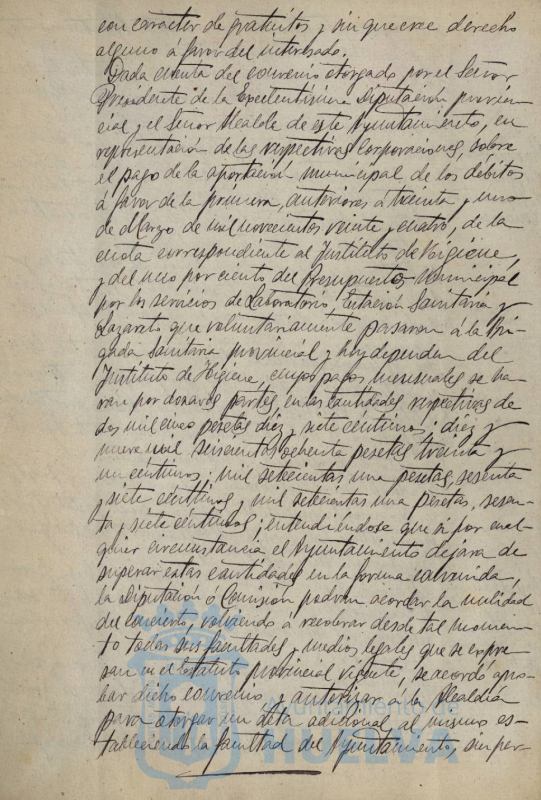 con caracter de gratuitos y sin que cree derecho
alguno á favor del interesado.
Dada cuenta del convenio otorgado por el Señor
Presidente de la Excelentísima Diputación provin-
cial y el Señor Alcalde de este Ayuntamiento, en
representación de las respectivas Corporaciones, sobre
el pago de la aportación municipal de los débitos
á favor de la primera, anteriores á treinta y uno
de Marzo de mil novecientos veinte y cuatro, de la
cuota correspondiente al Instituto de Higiene,
y del uno por ciento del Presupuesto Municipal
por los servicios de Laboratorio, Estación Sanitaria y
Lazareto que voluntariamente pasaron á la Bri-
gada Sanitaria provincial y hoy dependen del
Instituto de Higiene, cuyos pagos mensuales se ha-
ran por dozavas partes en las cantidades respectivas de
dos mil cinco pesetas diez y siete céntimos; diez y
nueve mil seiscientas ochenta pesetas treinta y
un céntimos; mil setecientas una pesetas, sesenta
y siete céntimos y mil setecientas una pesetas, sesen-
ta y siete céntimos; entendiéndose que si por cual-
quier circunstancia el Ayuntamiento dejara de
superar estas cantidades en la forma convenida,
la Diputación ó Comisión podrán acordar la nulidad
del concierto, volviendo á recobrar desde tal momen-
to todas sus facultades y medios legales que se expre-
san en el Estatuto provincial vigente, se acordó apro-
bar dicho convenio y autorizar á la Alcaldía
para otorgar un acta adicional al mismo es-
tableciendo la facultad del Ayuntamiento, sin per-
Ayuntamiento de
HUELVA